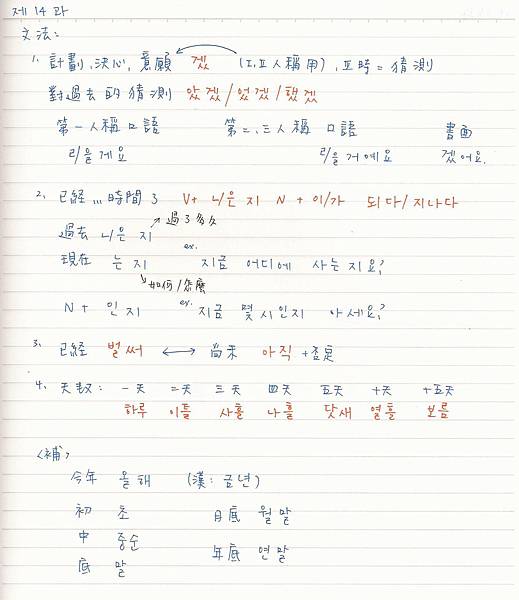 제 14 과
文法:
1. 計劃,決心,意願 겠 (I,II人稱用), III時=猜測
對過去的猜測 았겠/었겠/했겠
第一人稱口語 第二、三人稱 口語 書面
ㄹ/을게요 ㄹ/을거예요 겠어요.
2. 已經...時間了 V+ ㄴ/은 지 N + 이/가 되다/지나다
過去 ㄴ/은 지 過了多久
現在 는 지 ex. 지금 어디에 사는지요?
如何/怎麼
N + 인지 ex. 지금 몇 시인지 아세요?
3. 已經 벌써 ↔ 尚未 아직 +否定
4. 天數: 一天 二天 三天 四天 五天 十天 十五天
하루 이틀 사흘 나흘 닷새 열흘 보름
<補>
今年 올해 (漢: 금년)
初 초 月底 월말
中 중순
年底 연말
底 말